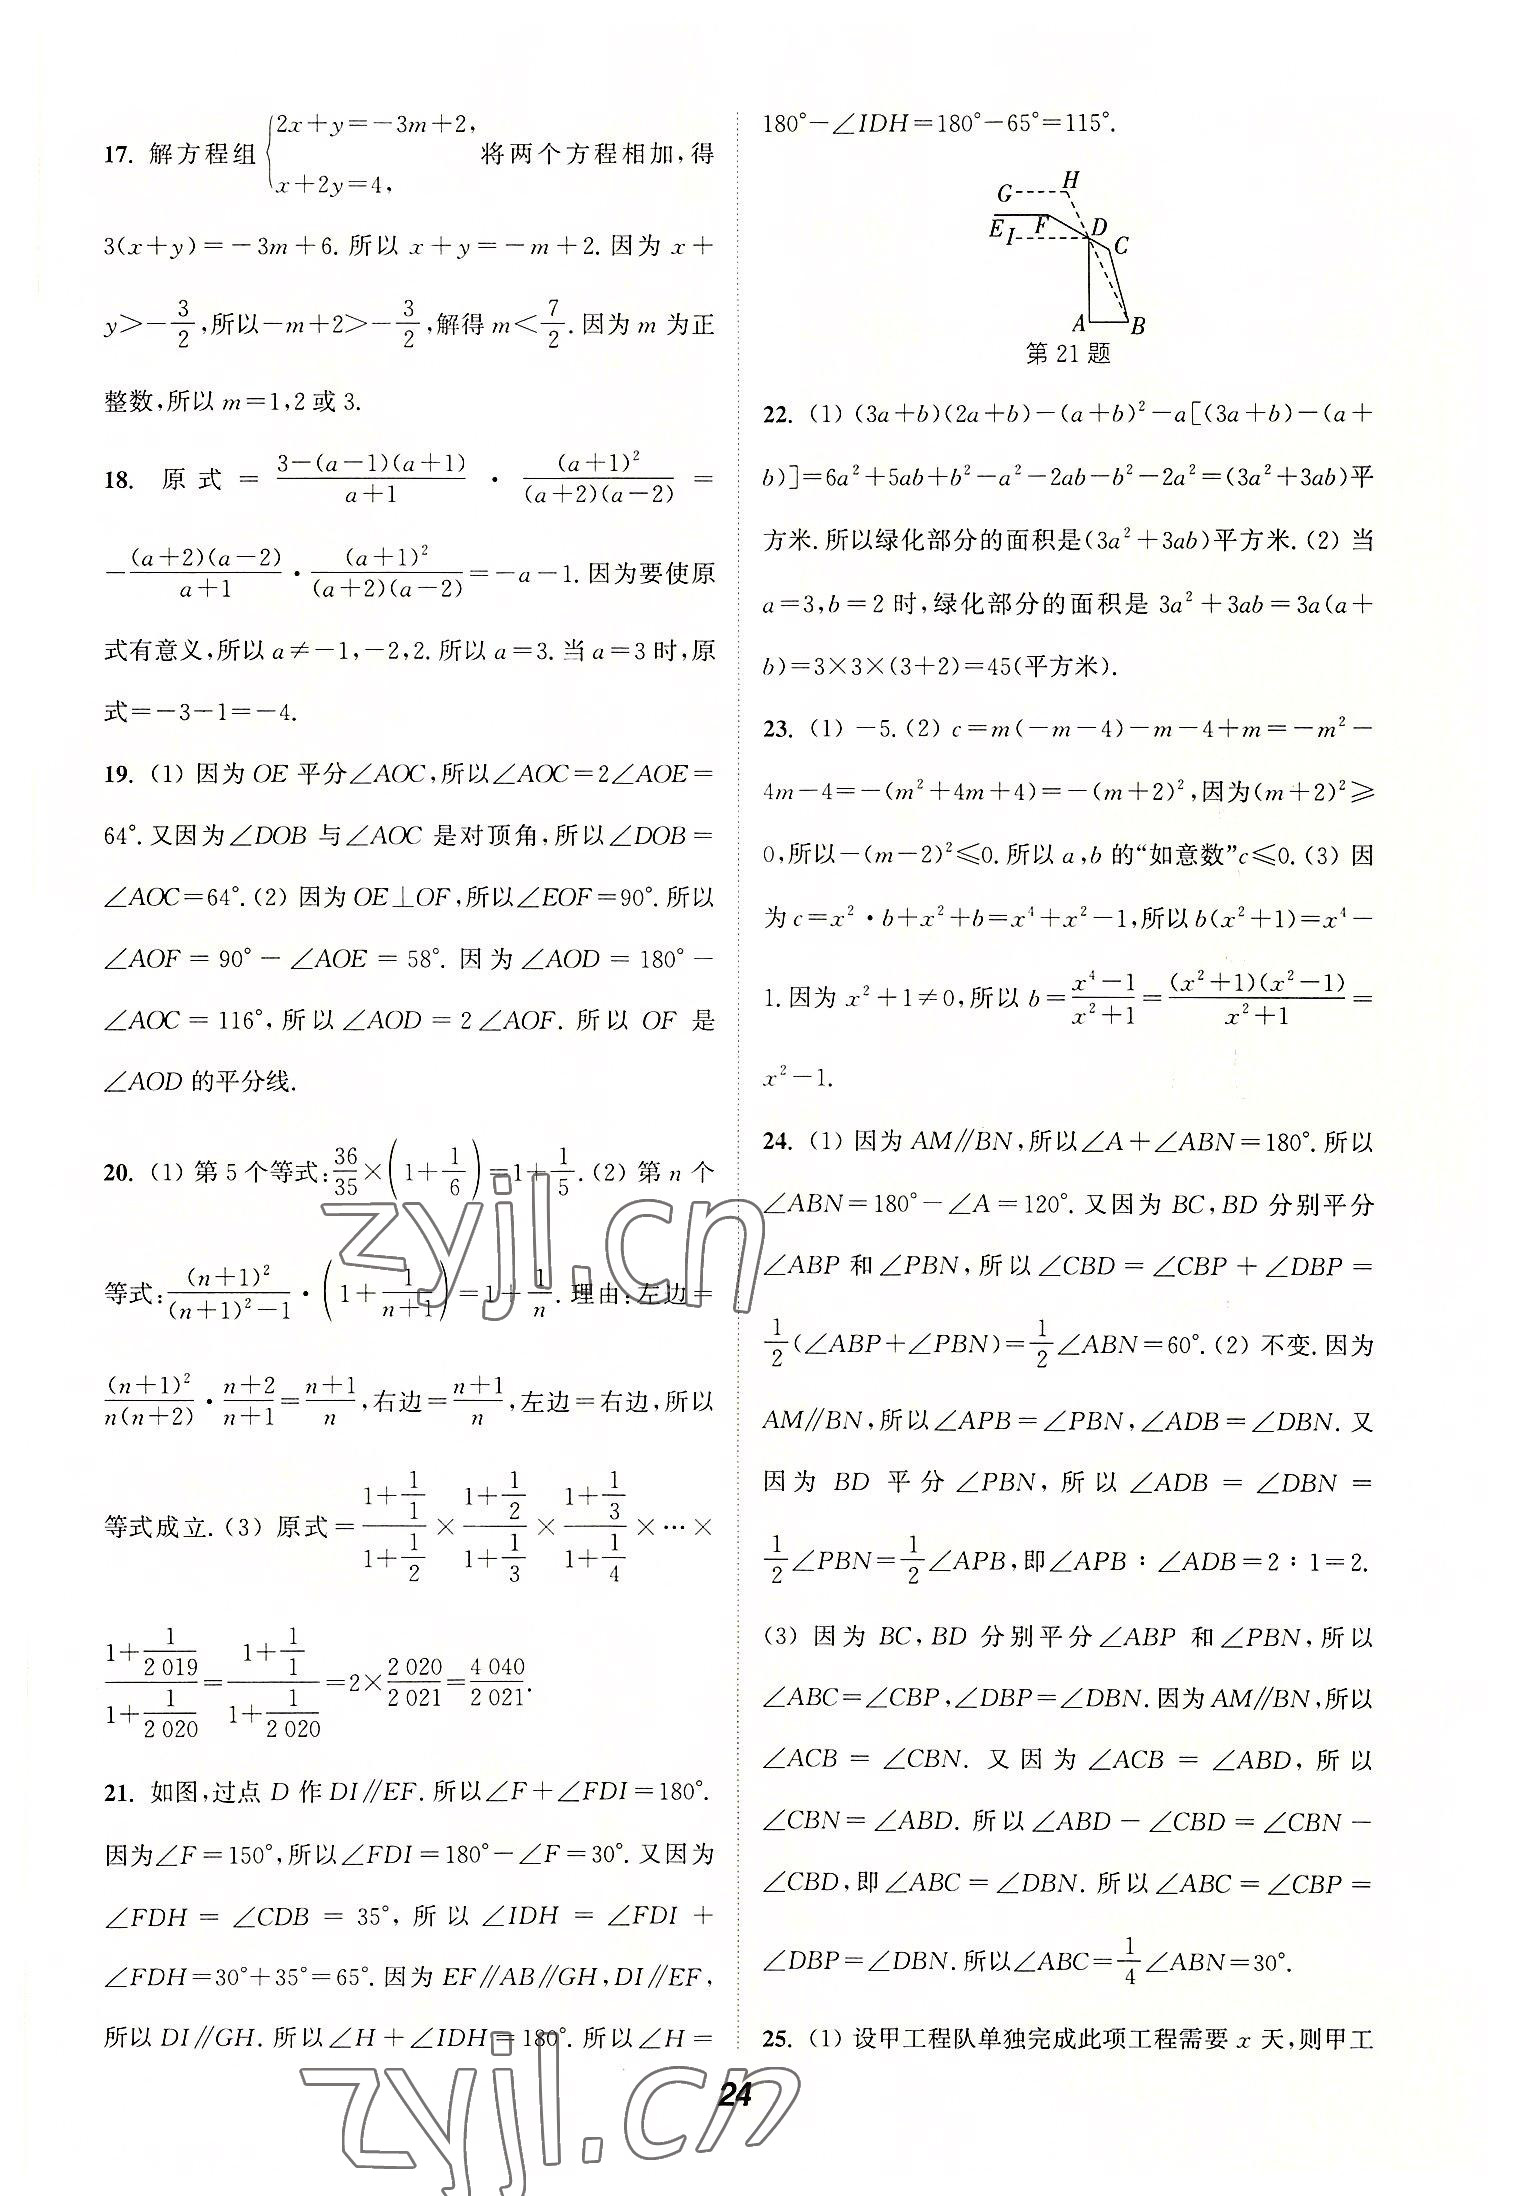 17. 解方程组{2x+y=-3m+2, x+2y=4, 将两个方程相加,得
3(x+y)=-3m+6. 所以 x+y=-m+2. 因为 x+
y>-3/2,所以-m+2>-3/2,解得 m<7/2. 因为 m 为正
整数,所以 m=1,2 或 3.
18. 原式=(3-(a-1)(a+1))/(a+1)·(a+1)²/((a+2)(a-2))=
-((a+2)(a-2))/(a+1)·(a+1)²/((a+2)(a-2))=-a-1. 因为要使原
式有意义,所以 a≠-1,-2,2. 所以 a=3. 当 a=3 时,原
式=-3-1=-4.
19. (1) 因为 OE 平分∠AOC,所以∠AOC=2∠AOE=
64°. 又因为∠DOB 与∠AOC 是对顶角,所以∠DOB=
∠AOC=64°. (2) 因为 OE⊥OF,所以∠EOF=90°. 所以
∠AOF=90°-∠AOE=58°. 因为∠AOD=180°-
∠AOC=116°,所以∠AOD=2∠AOF. 所以 OF 是
∠AOD 的平分线.
20. (1) 第 5 个等式:36/35×(1+1/6)=1+1/5. (2) 第 n 个
等式:(n+1)²/((n+1)²-1)·(1+1/(n+1))=1+1/n. 理由:左边=
(n+1)²/(n(n+2))·(n+2)/(n+1)=(n+1)/n,右边=(n+1)/n,左边=右边,所以
等式成立. (3) 原式=(1+1/1)/(1+1/2)×(1+1/2)/(1+1/3)×(1+1/3)/(1+1/4)×…×
(1+1/2 019)/(1+1/2 020)=(1+1/1)/(1+1/2 020)=2×2 020/2 021=4 040/2 021.
21. 如图,过点 D 作 DI∥EF. 所以∠F+∠FDI=180°.
因为∠F=150°,所以∠FDI=180°-∠F=30°. 又因为
∠FDH=∠CDB=35°,所以∠IDH=∠FDI+
∠FDH=30°+35°=65°. 因为 EF∥AB∥GH,DI∥EF,
所以 DI∥GH. 所以∠H+∠IDH=180°. 所以∠H=
180°-∠IDH=180°-65°=115°.
G H
E I F D C
A B
第 21 题
22. (1) (3a+b)(2a+b)-(a+b)²-a[(3a+b)-(a+
b)]=6a²+5ab+b²-a²-2ab-b²-2a²=(3a²+3ab)平
方米. 所以绿化部分的面积是(3a²+3ab)平方米. (2) 当
a=3,b=2 时,绿化部分的面积是 3a²+3ab=3a(a+
b)=3×3×(3+2)=45(平方米).
23. (1) -5. (2) c=m(-m-4)-m-4+m=-m²-
4m-4=-(m²+4m+4)=-(m+2)²,因为(m+2)²≥
0,所以-(m-2)²≤0. 所以 a,b 的“如意数”c≤0. (3) 因
为 c=x²·b+x²+b=x⁴+x²-1,所以 b(x²+1)=x⁴-
1. 因为 x²+1≠0,所以 b=(x⁴-1)/(x²+1)=((x²+1)(x²-1))/(x²+1)=
x²-1.
24. (1) 因为 AM∥BN,所以∠A+∠ABN=180°. 所以
∠ABN=180°-∠A=120°. 又因为 BC,BD 分别平分
∠ABP 和∠PBN,所以∠CBD=∠CBP+∠DBP=
1/2(∠ABP+∠PBN)=1/2∠ABN=60°. (2) 不变. 因为
AM∥BN,所以∠APB=∠PBN,∠ADB=∠DBN. 又
因为 BD 平分∠PBN,所以∠ADB=∠DBN=
1/2∠PBN=1/2∠APB,即∠APB∶∠ADB=2∶1=2.
(3) 因为 BC,BD 分别平分∠ABP 和∠PBN,所以
∠ABC=∠CBP,∠DBP=∠DBN. 因为 AM∥BN,所以
∠ACB=∠CBN. 又因为∠ACB=∠ABD,所以
∠CBN=∠ABD. 所以∠ABD-∠CBD=∠CBN-
∠CBD,即∠ABC=∠DBN. 所以∠ABC=∠CBP=
∠DBP=∠DBN. 所以∠ABC=1/4∠ABN=30°.
25. (1) 设甲工程队单独完成此项工程需要 x 天,则甲工
24
zyjl.cn
zyjl.cn